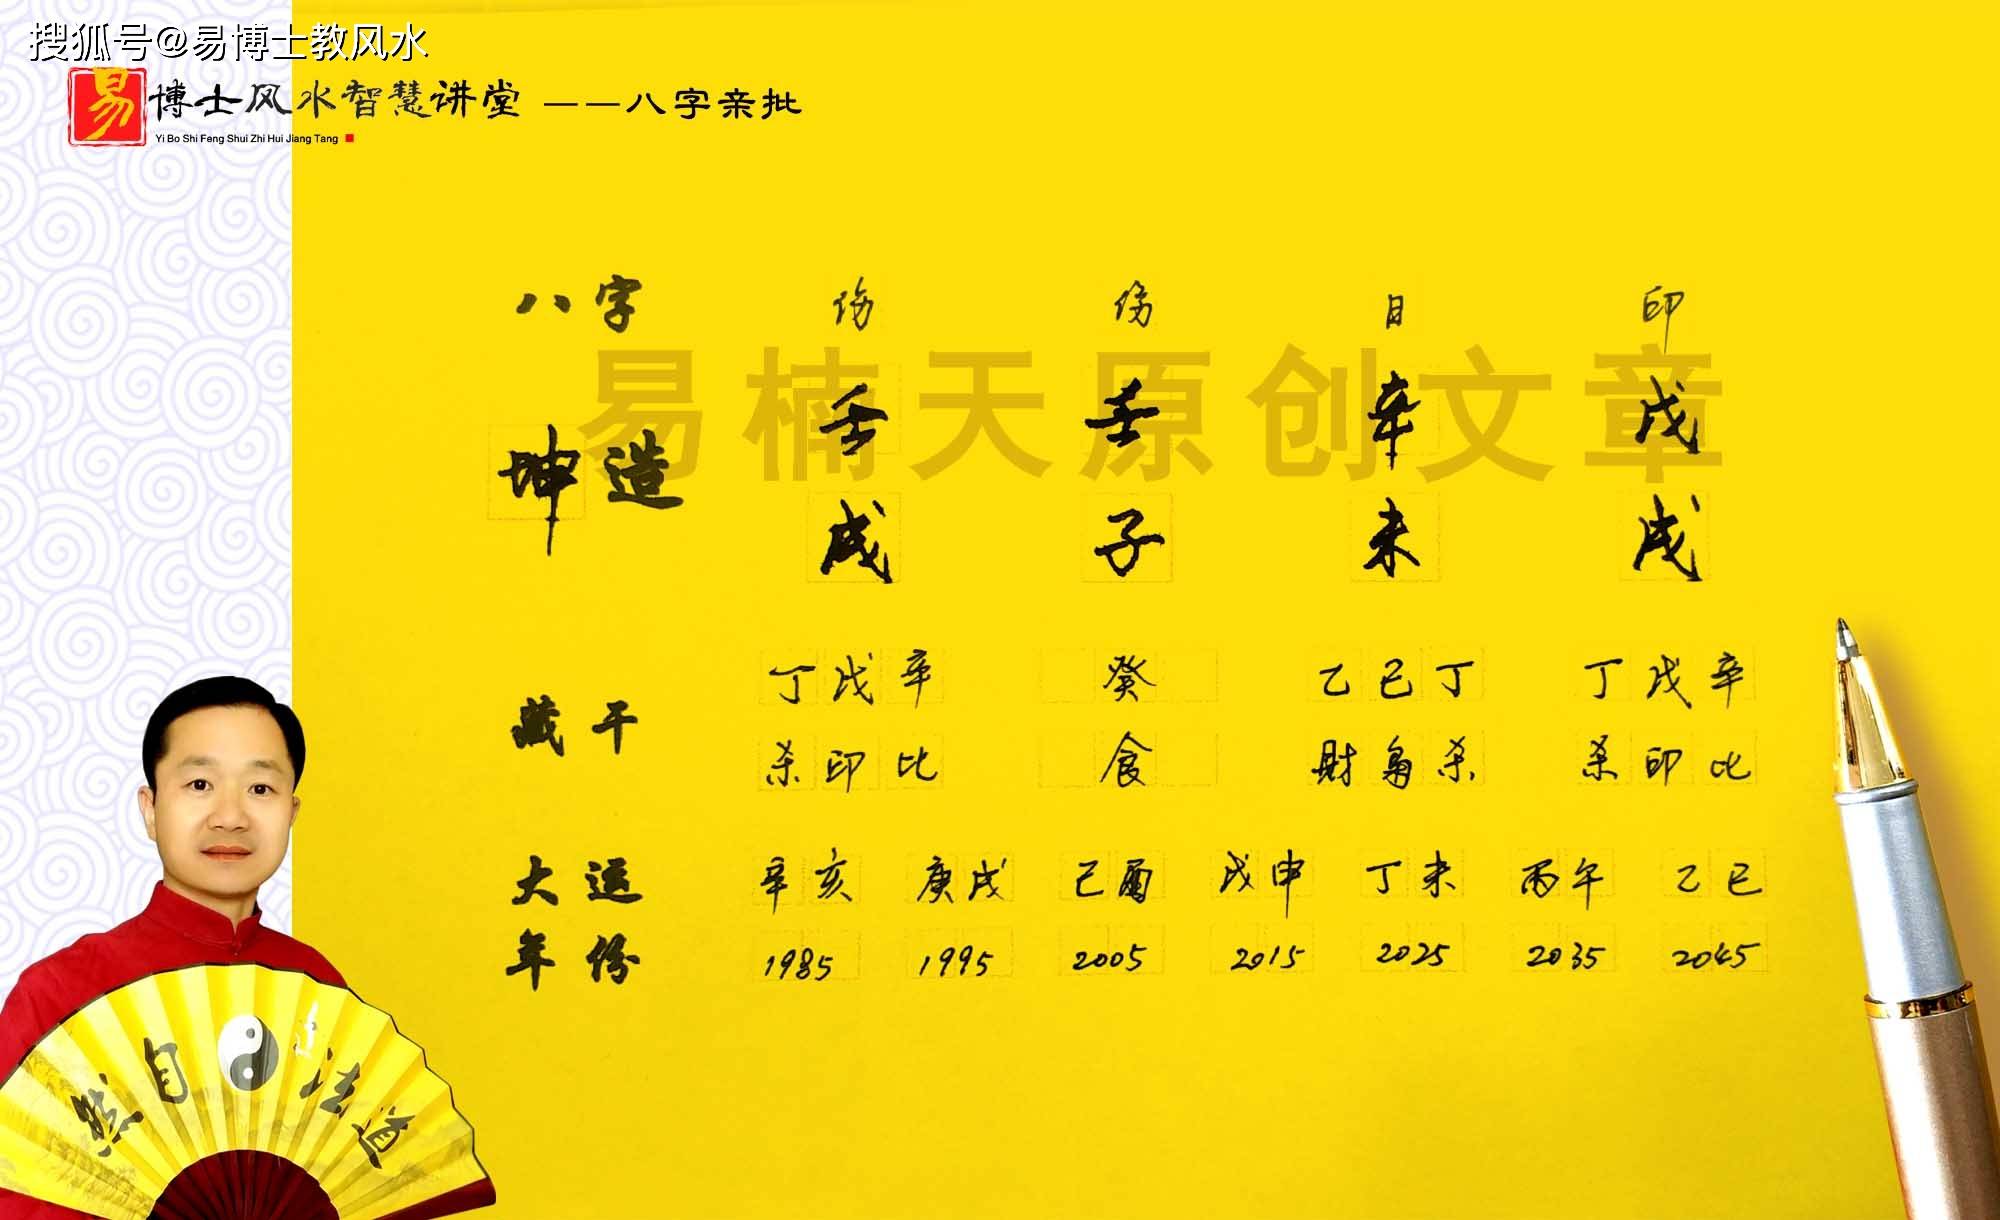 搜狐号@易博士教风水
易 博士风水智慧讲堂 ——八字亲批
Yi Bo Shi Feng Shui Zhi Hui Jiang Tang
八字 伤 伤 日 印
易楠天原创文章
坤造 壬 壬 辛 戊
戌 子 未 戌
藏干 丁戊辛 癸 乙己丁 丁戊辛
杀印比 食 财枭杀 杀印比
大运 辛亥 庚戌 己酉 戊申 丁未 丙午 乙巳
年份 1985 1995 2005 2015 2025 2035 2045
道法自然